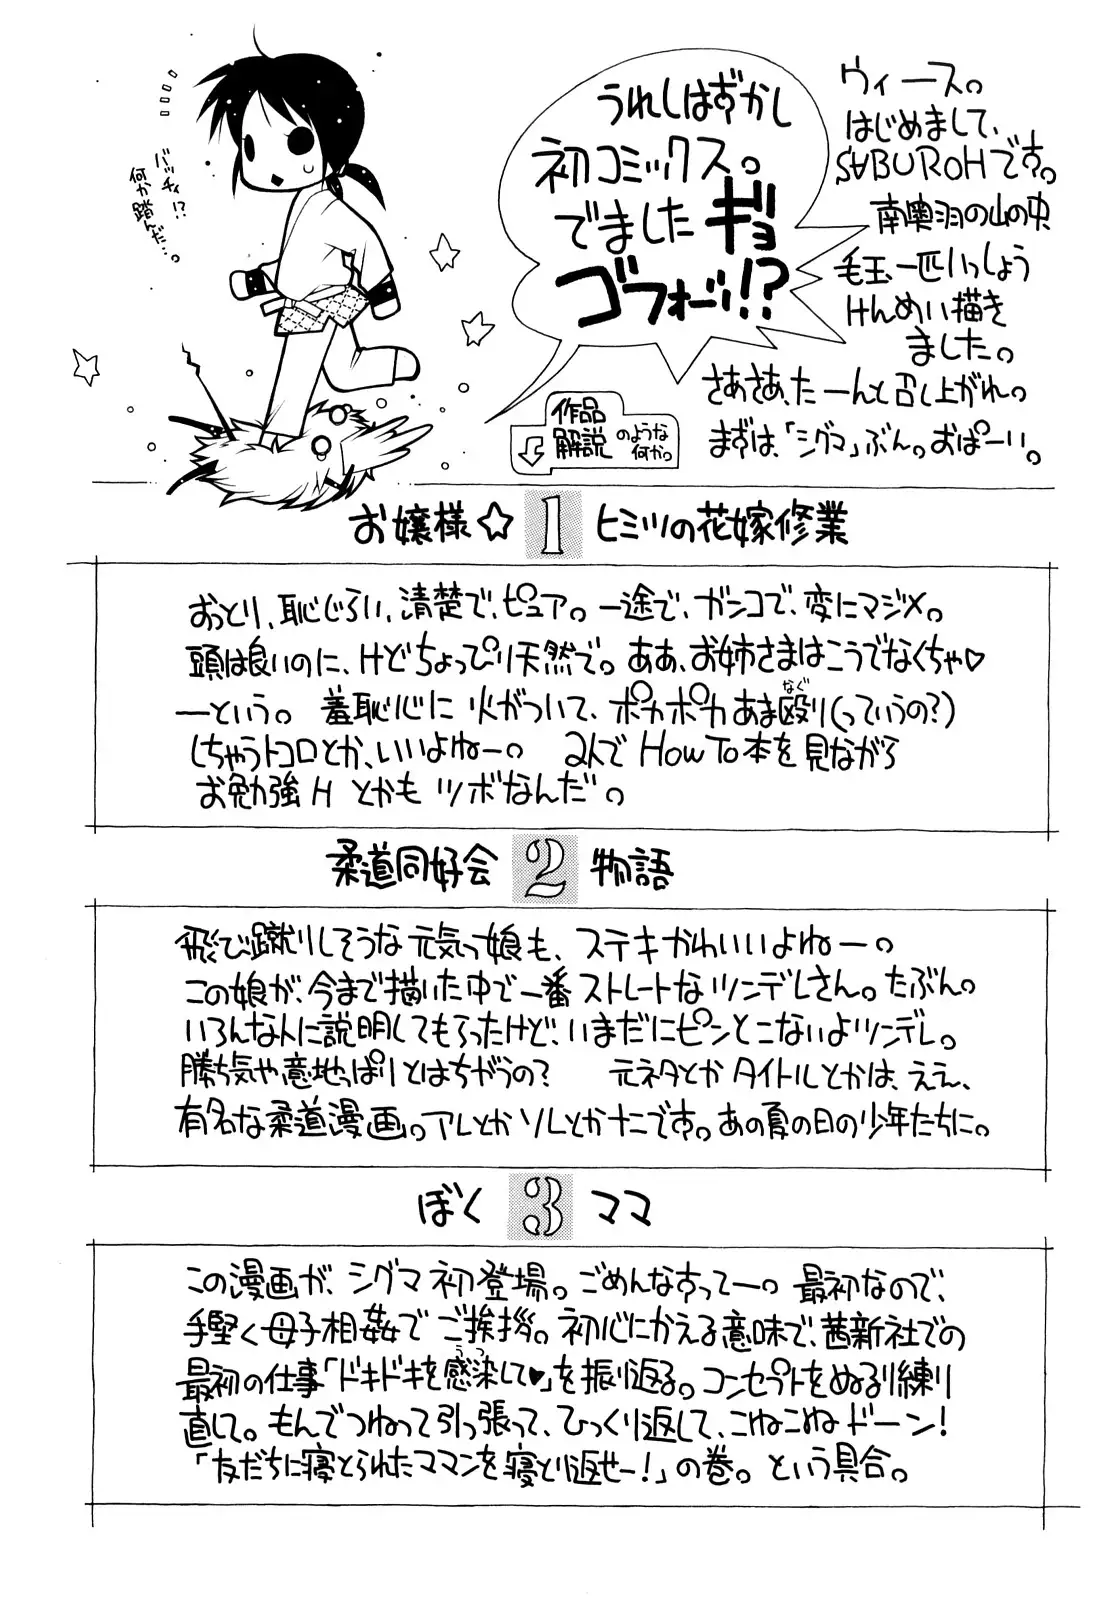 ウィース。
はじめまして、
SABUROHです。
南奥羽の山の中
毛玉一匹いっしょう
けんめい描き
ました。
さあさあ、たーんと召し上がれ。
まずは、「シグマ」ぶん。おぱーい。
うれしはずかし
初コミックス。
でましたギョ
ゴフォーッ!?
バッチィ!?
何か踏んだ…。
作品
解説
のような
何か。
お嬢様☆1 ヒミツの花嫁修業
おっとり、恥じらい、清楚で、ピュア。一途で、ガンコで、変にマジメ。
頭は良いのに、けどちょっぴり天然で。ああ、お姉さまはこうでなくちゃ♡
ーという。 羞恥心に火がついて、ポカポカあま殴り(っていうの?)
なぐ
しちゃうトコロとか、いいよねー。 2人でHow To本を見ながら
お勉強H とかも ツボなんだ。
柔道同好会 2 物語
飛び蹴りしそうな元気っ娘も、ステキかわいいよねー。
この娘が、今まで描いた中で一番ストレートなツンデレさん。たぶん。
いろんな人に説明してもらったけど、いまだにピンとこないよツンデレ。
勝ち気や意地っぱりとはちがうの? 元ネタとかタイトルとかは、ええ、
有名な柔道漫画。アレとかソレとかナニです。あの夏の日の少年たちに。
ぼく 3 ママ
この漫画が、シグマ初登場。ごめんなすってー。最初なので、
手堅く母子相姦でご挨拶。初心にかえる意味で、茜新社での
最初の仕事「ドキドキを感染して♥」を振り返る。コンセプトをぬるり練り
うつ
直して。もんでつねって引っ張って、ひっくり返して、こねこねドーン!
「友だちに寝とられたママンを寝とり返せー!」の巻。という具合。